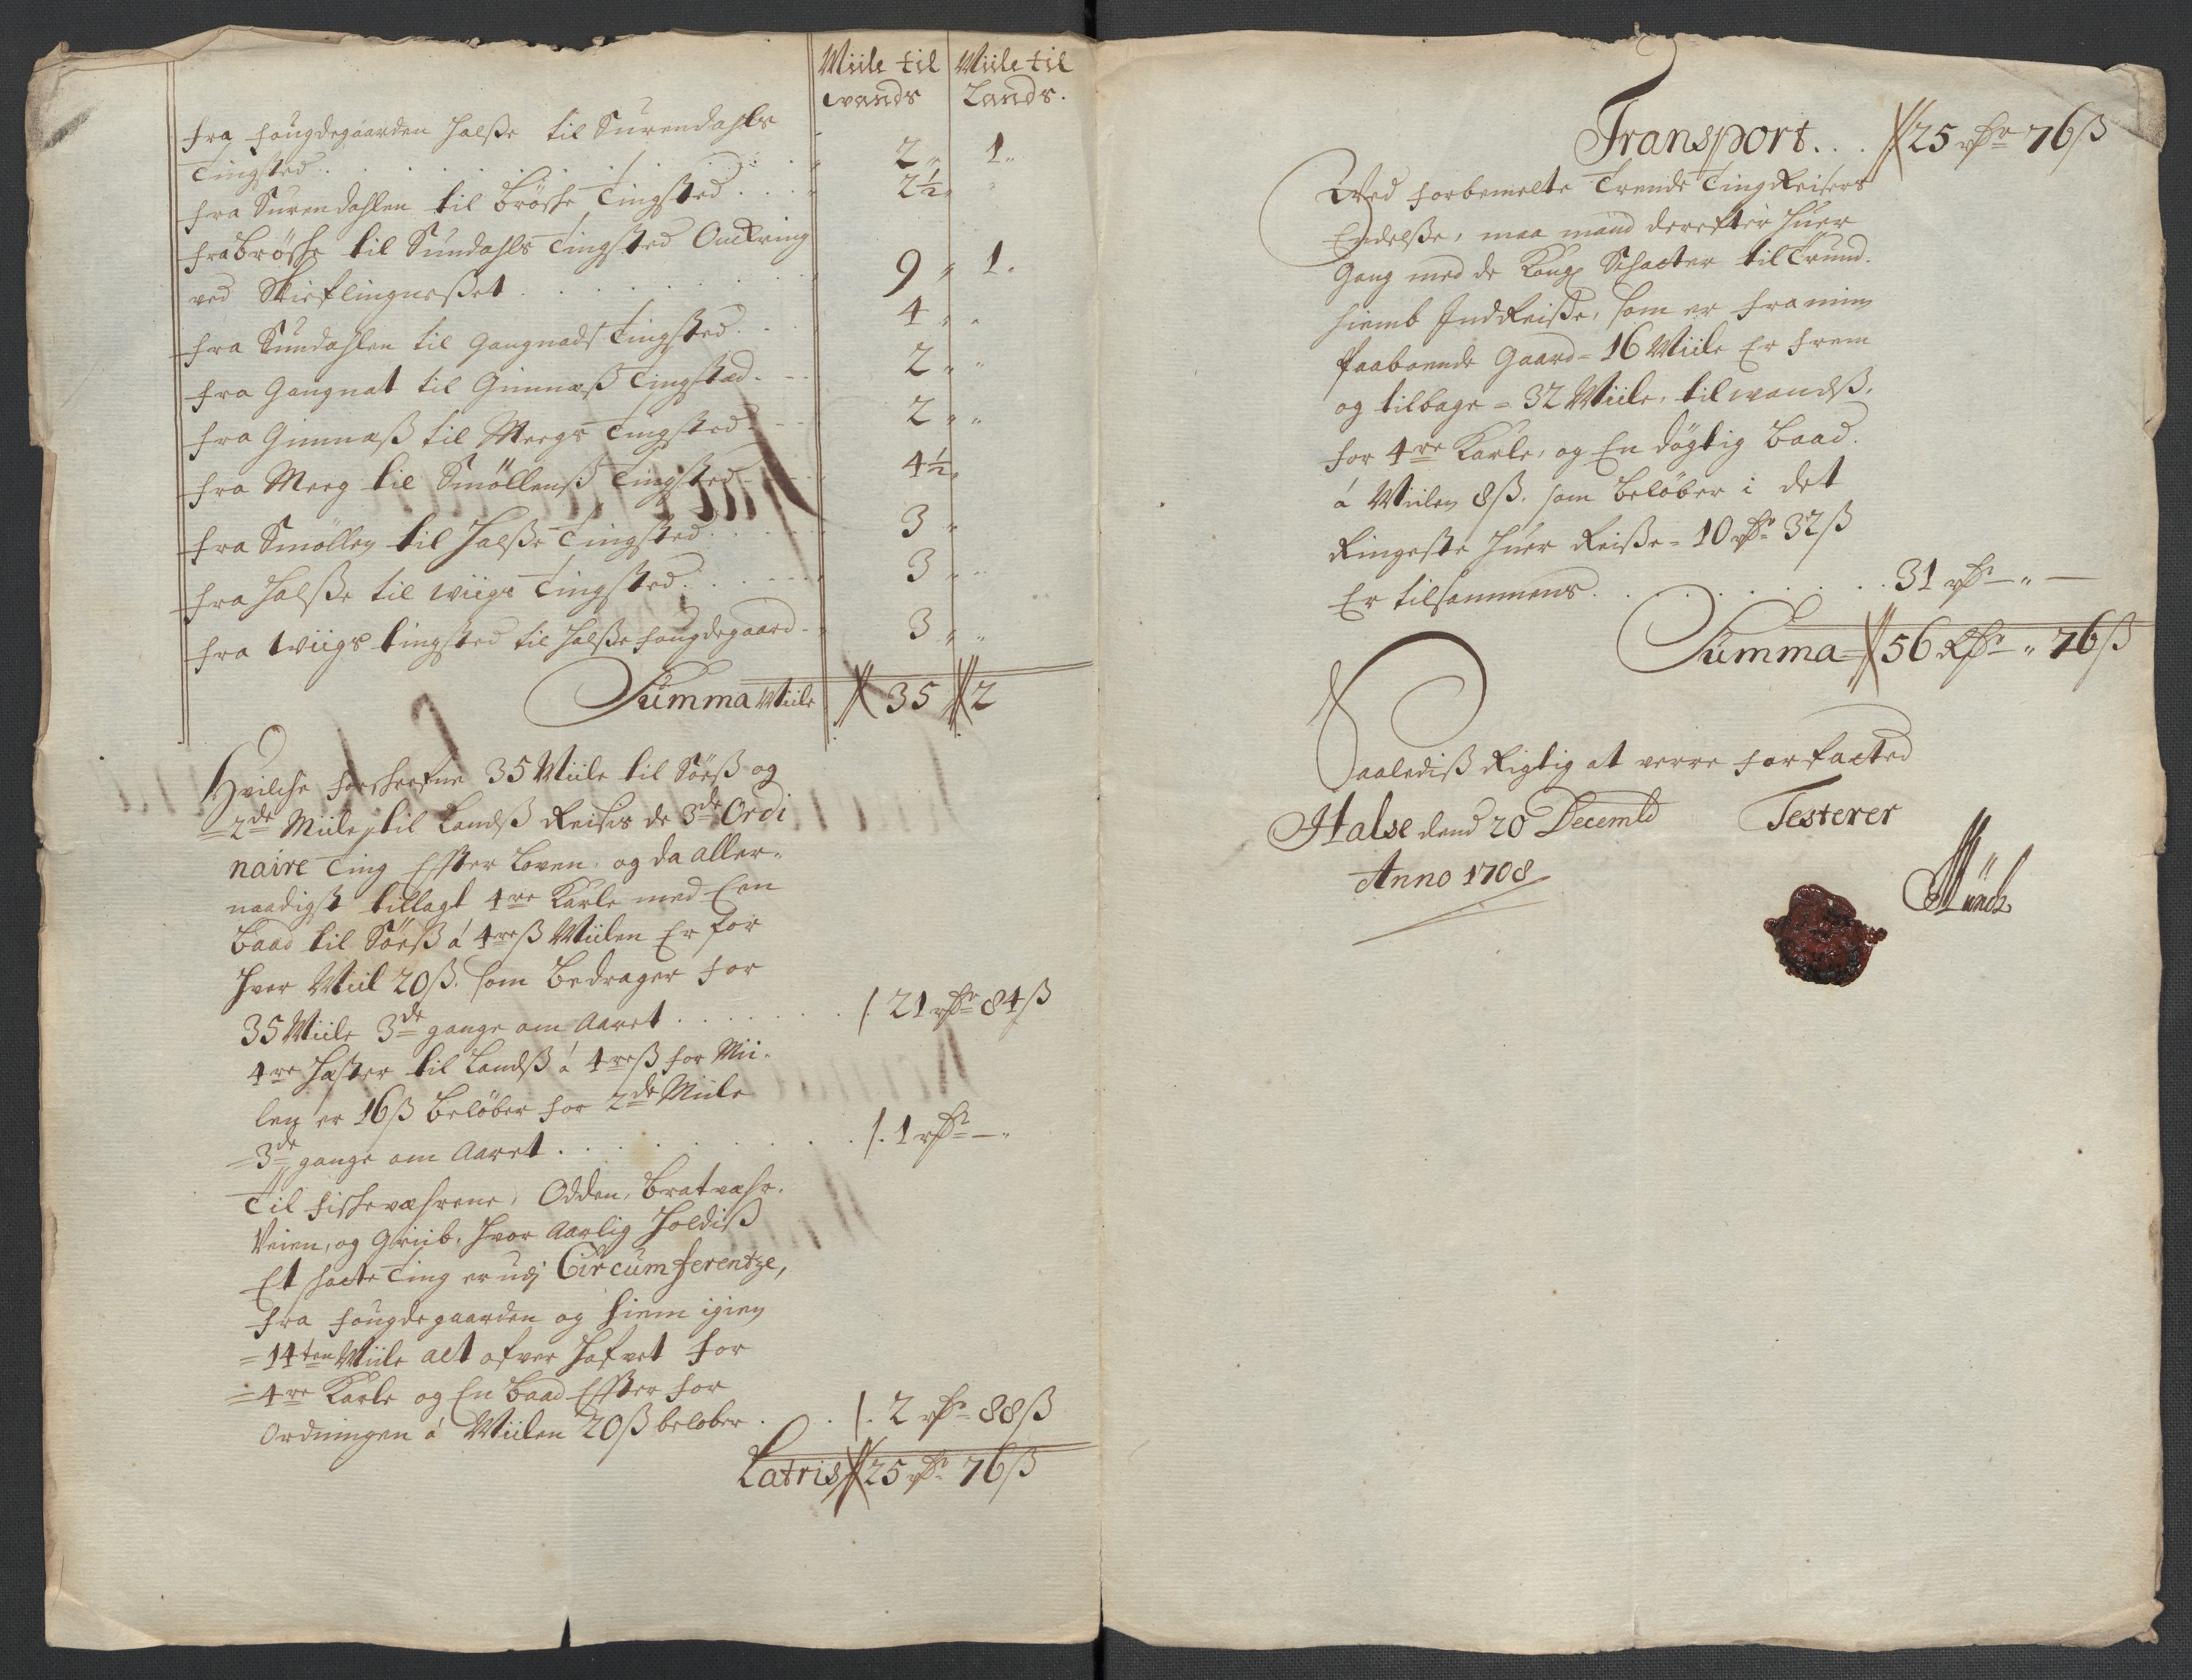 Miile til Miile til
wands Lands.
fra fougdegaarden Halsse til Surendahls
Tingsted . . . . . . . 2 „ 1 „
fra Surendahlen til Brøske Tingsted . . . 2½ „
fra Brøske til Sundahls Tingsted Omkring
ved Skieflingnesset . . . . . . 9 „ 1.
fra Sundahlen til Gangnads Tingsted . . 4 „ „
fra Gangnat til Gimnæss Tingsted . . . 2 „ „
fra Gimnæss til Meegs Tingsted . . . 2 „ „
fra Meeg til Smøllenss Tingsted . . . 4½ „
fra Smøllen til Halsse Tingsted . . . . 3 „
fra Halsse til wiigs Tingsted . . . . 3 „ „
fra wiigs tingsted til Halsse fougdegaard . . 3 „ „
Summa Miile 35 2
Hvilche forskrefne 35 Miile til Søess og
2de Miile, til Landss Reises de 3de Ordi
naire Ting Effter Loven. og da aller-
naadigst tillagt 4re Karle med Een
Baad til Søess á 4re ß Miilen Er for
hver Miil 20 ß. som bedrager for
35 Miile 3de gange om Aaret . . . . . . . /. 21 rdr 84 ß
4re Hæster til Landss á 4re ß for Mii-
len er 16 ß beløber for 2de Miile
3de gange om Aaret . . . . . . . . /. 1 rdr — „
Til fiskeværene, Odden, Bratvæhr.
Veien, og Griib, hvor Aarlig Holdiss
Et skatte Ting er udj Circumferentze,
fra fougdegaarden og hiem igien
14ten Miile alt ofver Hafvet for
4re Karle og En Baad Effter for
Ordningen á Miilen 20 ß beløber . . . /. 2 rdr 88 ß
Latris 25 rdr 76 ß
Transport . . . 25 rdr 76 ß
Wed forbemelte Trende Ting Reisers
Endelsse, maa mand derefter Huer
Gang med de Kongl Schatter til Trund.
hiemb IndReisse, som er fra min
Paaboende Gaard = 16 Miile Er frem
og tilbage = 32 Miile, til wandss,
for 4re Karle, og En døgtig Baad.
á Miilen 8 ß. som beløber i det
Ringeste Huer Reisse = 10 rdr 32 ß
Er tilsammens . . . . . . . . 31 rdr — „ —
Summa 56 Rdr „ 76 ß
Saalediss Rigtig at verre forfatted
Halse dend 20 Decemb Testerer
Anno 1708
Münch